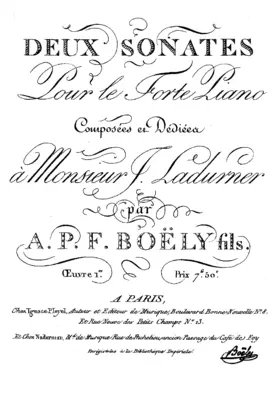 DEUX SONATES
Pour le Forte Piano
Composées et Dédiées
à Monsieur J. Ladurner
par
A. P. F. BOËLY fils.
Œuvre 1.er Prix 7.# 50.c
A PARIS,
Chez Ignace Pleyel, Auteur et Editeur de Musique, Boulevard Bonne-Nouvelle N.° 8.
Et Rue Neuve des Petits Champs N.° 13.
Et Chez Naderman, M.d de Musique, Rue de Richelieu, ancien Passage du Café de Foy
Enregistrées à la Bibliothèque Impériale.
Boëly